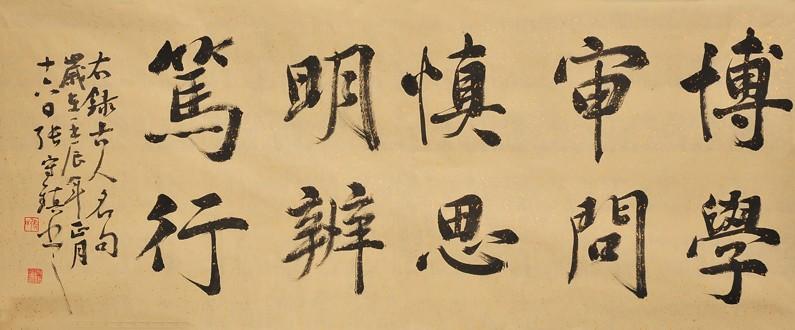 博學
审問
慎思
明辨
篤行
右錄古人名句
歲在壬辰年正月
十六日張守鎮書